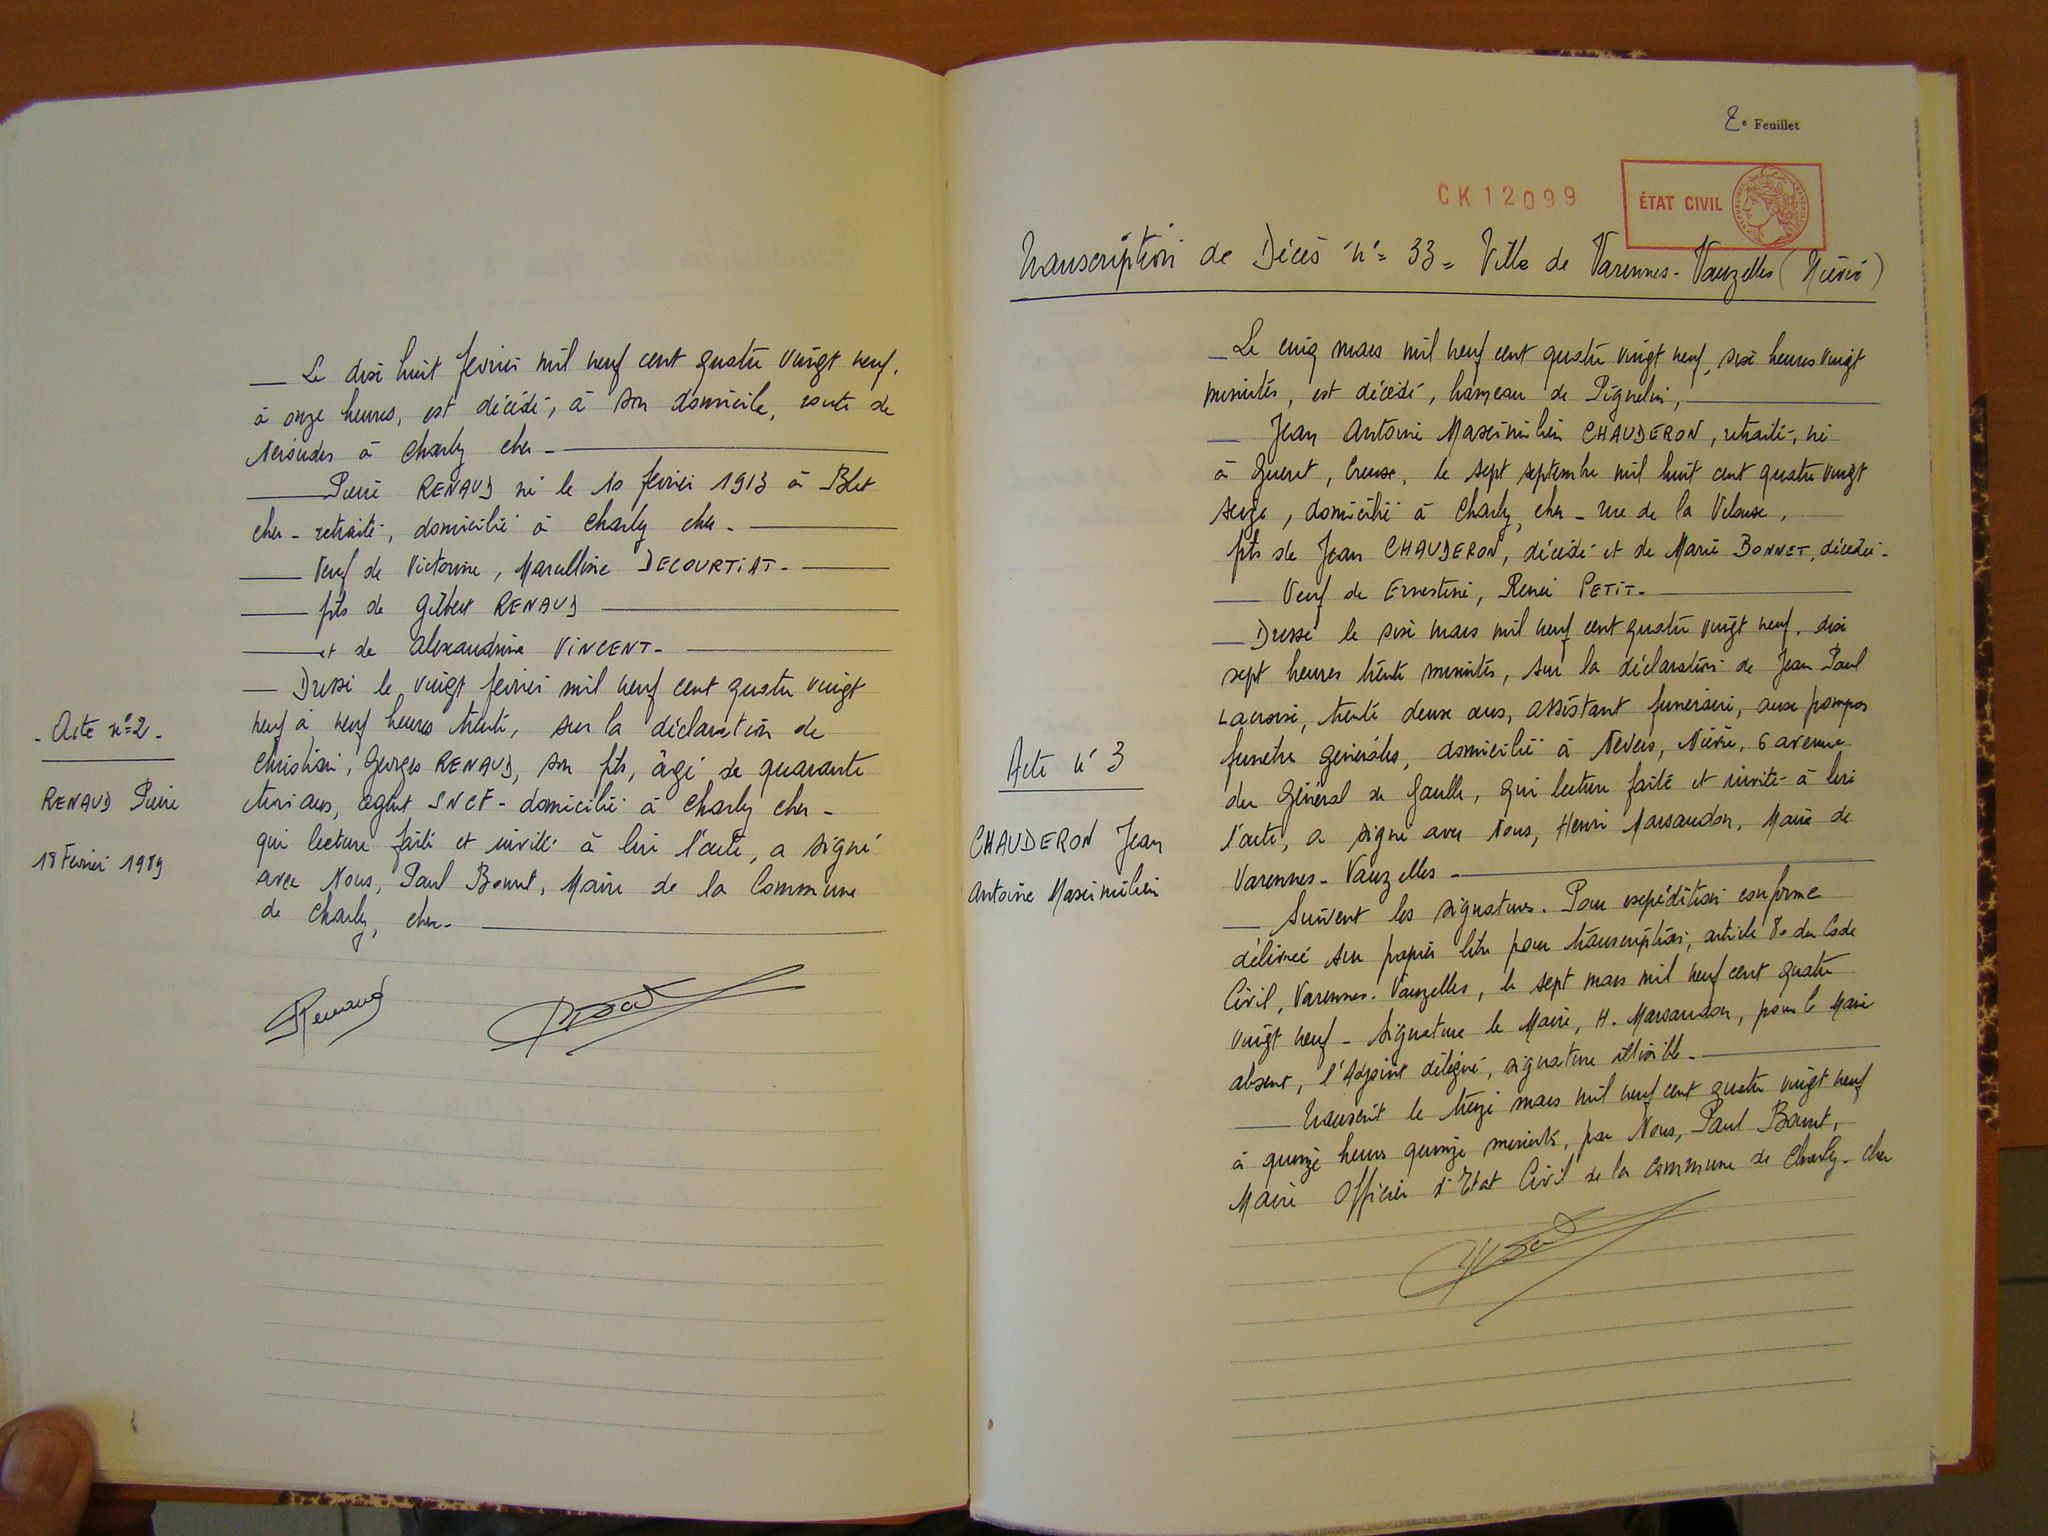 Le dix huit février mil neuf cent quatre vingt neuf,
à onze heures, est décédé, à son domicile, route de
Nérondes à Charly cher -
Pierre RENAUD né le 10 février 1913 à Blet
cher - retraité, domicilié à Charly cher -
Veuf de Victorine, Marcelline DECOURTIAT -
fils de Gilbert RENAUD
et de Alexandrine VINCENT -
Dressé le vingt février mil neuf cent quatre vingt
neuf à neuf heures trente, sur la déclaration de
Christian, Georges RENAUD, son fils, âgé de quarante
trois ans, agent SNCF - domicilié à Charly cher -
qui lecture faite et invité à lire l'acte, a signé
avec Nous, Paul Bonnet, Maire de la Commune
de Charly, cher -
- Acte n° 2 -
RENAUD Pierre
18 Février 1989
Renaud
2e Feuillet
CK12099
ÉTAT CIVIL
Transcription de Décès n° = 33 = Ville de Varennes-Vauzelles (Nièvre)
Le cinq mars mil neuf cent quatre vingt neuf, six heures vingt
minutes, est décédé, hameau de Pignelin,
Jean Antoine Maximilien CHAUDERON, retraité, né
à Guéret, Creuse, le sept septembre mil huit cent quatre vingt
seize, domicilié à Charly, cher - rue de la
fils de Jean CHAUDERON, décédé et de Marie BONNET, décédée -
Veuf de Ernestine, Renée PETIT -
Dressé le six mars mil neuf cent quatre vingt neuf, dix
sept heures trente minutes, sur la déclaration de Jean Paul
Lacroix, trente deux ans, assistant funéraire, aux pompes
funèbre générales, domicilié à Nevers, Nièvre, 6 avenue
du Général de Gaulle, qui lecture faite et invité à lire
l'acte, a signé avec Nous, Henri Marsaudon, Maire de
Varennes-Vauzelles -
Suivent les signatures. Pour expédition conforme
délivrée sur papier libre pour transcription, article 80 du Code
Civil, Varennes-Vauzelles, le sept mars mil neuf cent quatre
vingt neuf - Signature le Maire, H. Marsaudon, pour le Maire
absent, l'Adjoint délégué, signature illisible -
Transcrit le treize mars mil neuf cent quatre vingt neuf
à quinze heures quinze minutes, par Nous, Paul Bonnet,
Maire Officier d'Etat Civil de la commune de Charly - cher
Acte n° 3
CHAUDERON Jean
Antoine Maximilien